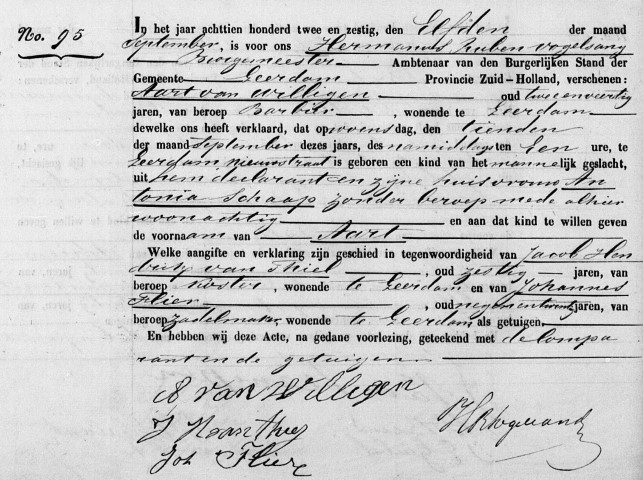 No. 95
In het jaar achttien honderd twee en zestig, den Elfden der maand
September, is voor ons Hermanus Huben Vogelsang
Burgemeester Ambtenaar van den Burgerlijken Stand der
Gemeente Leerdam Provincie Zuid-Holland, verschenen:
Aart van Willigen oud twee en veertig
jaren, van beroep Barbier, wonende te Leerdam
dewelke ons heeft verklaard, dat op woensdag, den tienden
der maand September dezes jaars, des namiddags ten Een ure, te
Leerdam Nieuwstraat is geboren een kind van het mannelijk geslacht,
uit hem declarant en zijne huisvrouw An
tonia Schaap zonder beroep mede alhier
woonachtig en aan dat kind te willen geven
de voornaam van Aart
Welke aangifte en verklaring zijn geschied in tegenwoordigheid van Jacob Hen
drik van Thiel, oud zestig jaren, van
beroep Koster, wonende te Leerdam en van Johannes
Flier, oud negenentwintig jaren, van
beroep zadelmaker, wonende te Leerdam als getuigen.
En hebben wij deze Acte, na gedane voorlezing, geteekend met de Compa
rant en de getuigen.
A van Willigen
Joh Flier